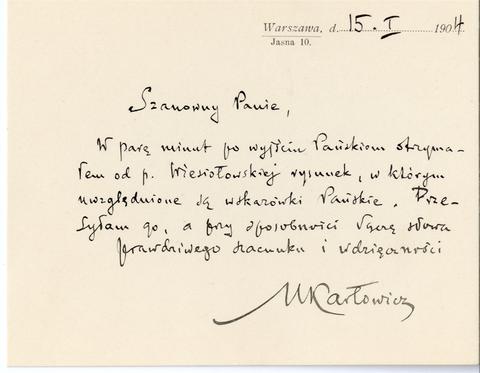 Warszawa, d. 15. I 1904
Jasna 10.
Szanowny Panie,
W parę minut po wyjściu Pańskiem otrzyma-
łem od p. Wiesiołowskiej rysunek, w którym
uwzględnione są wskazówki Pańskie. Prze-
syłam go, a przy sposobności łączę słowa
prawdziwego szacunku i wdzięczności
MKarłowicz